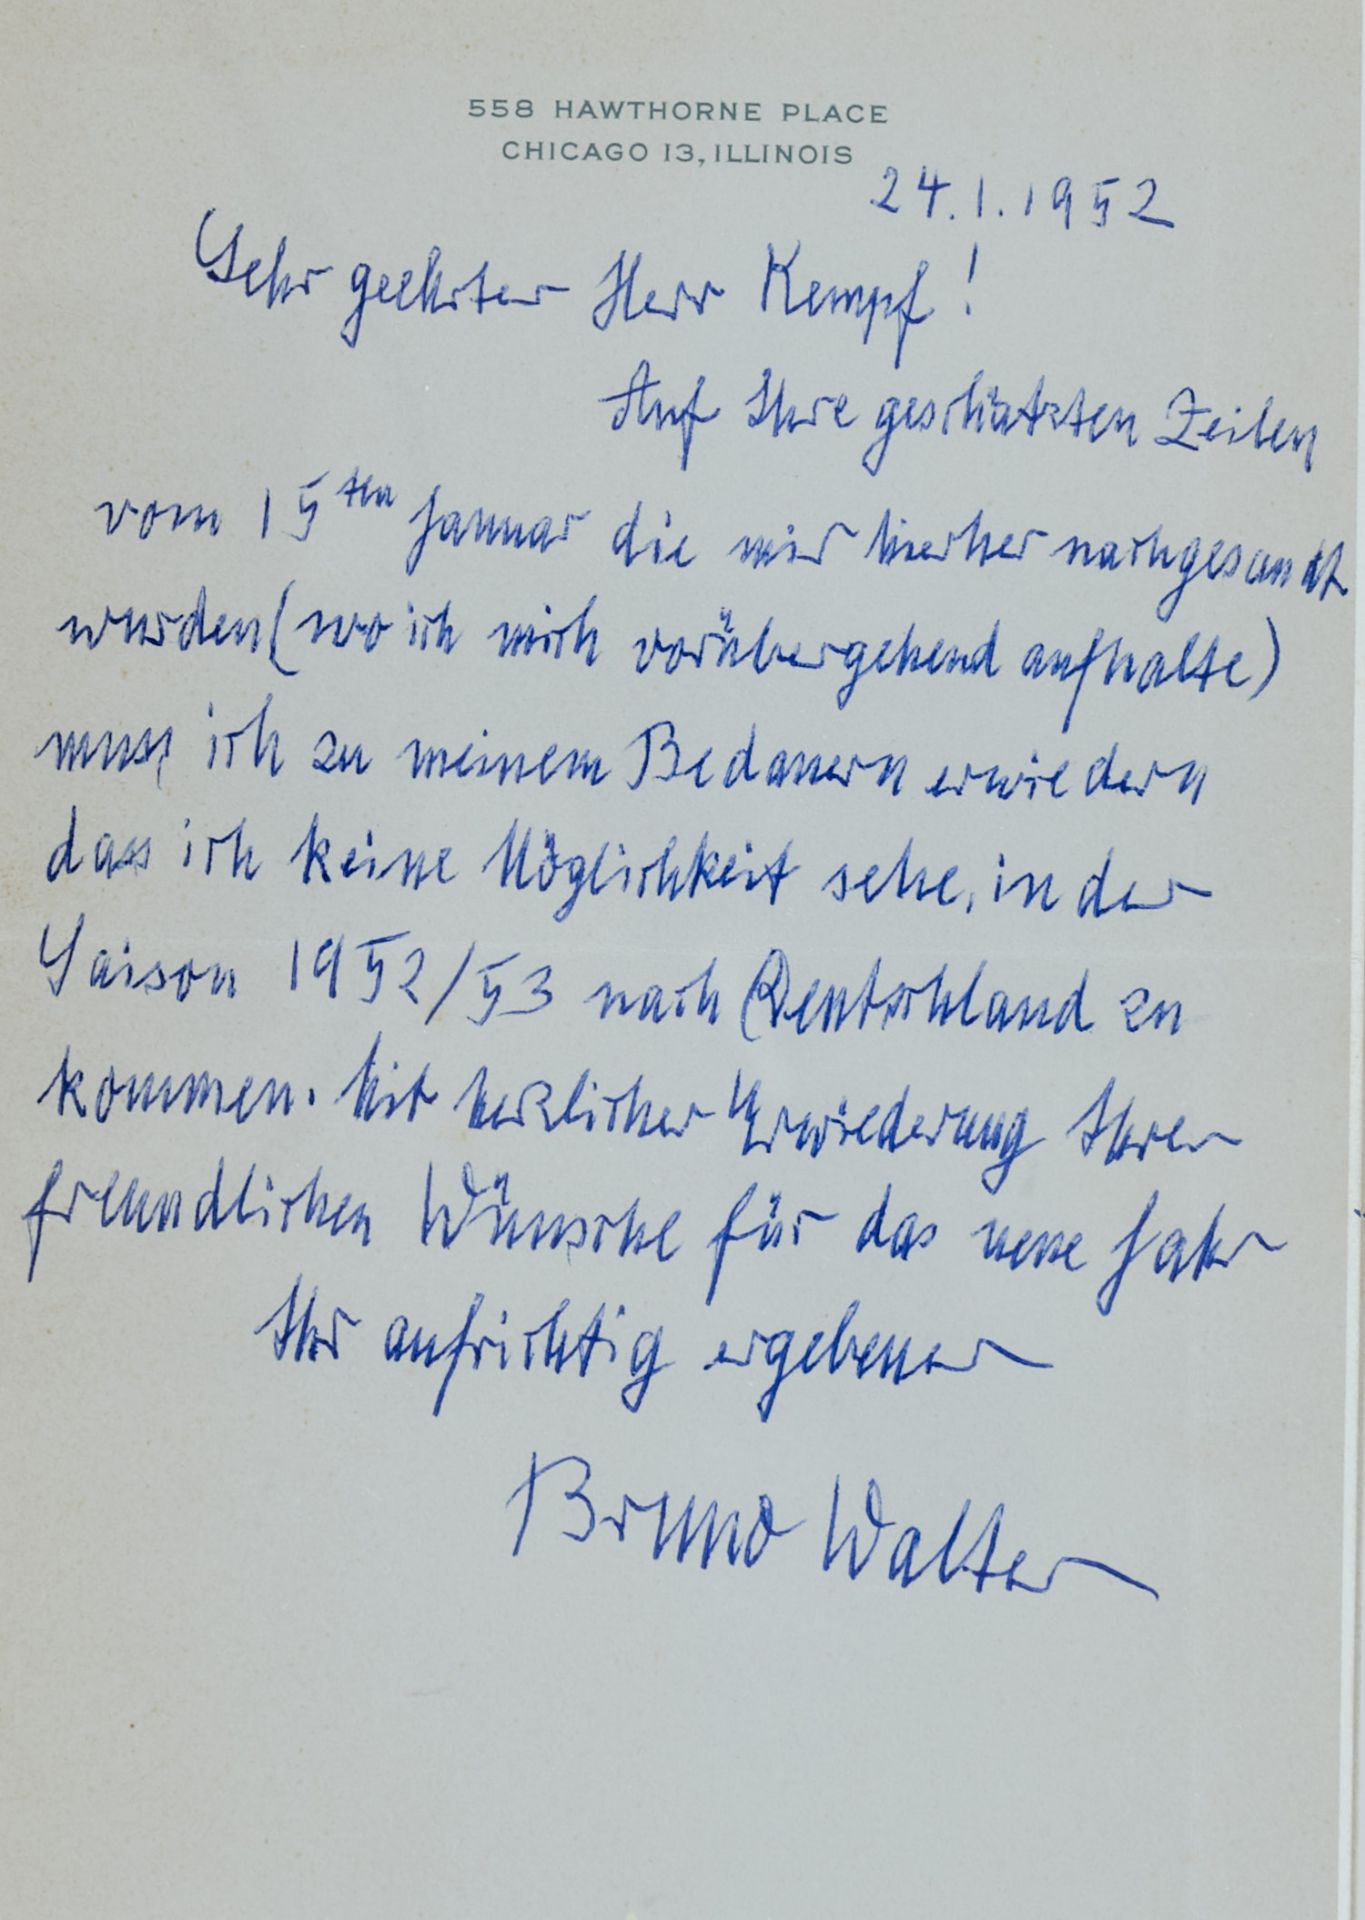 558 HAWTHORNE PLACE
CHICAGO 13, ILLINOIS
24.1.1952
Sehr geehrter Herr Kempf!
Auf Ihre geschätzten Zeilen
vom 15ten Januar die mir hierher nachgesandt
wurden (wo ich mich vorübergehend aufhalte)
muss ich zu meinem Bedauern erwiedern
dass ich keine Möglichkeit sehe, in der
Saison 1952/53 nach Deutschland zu
kommen. Mit herzlicher Erwiederung Ihrer
freundlichen Wünsche für das neue Jahr
Ihr aufrichtig ergebener
Bruno Walter